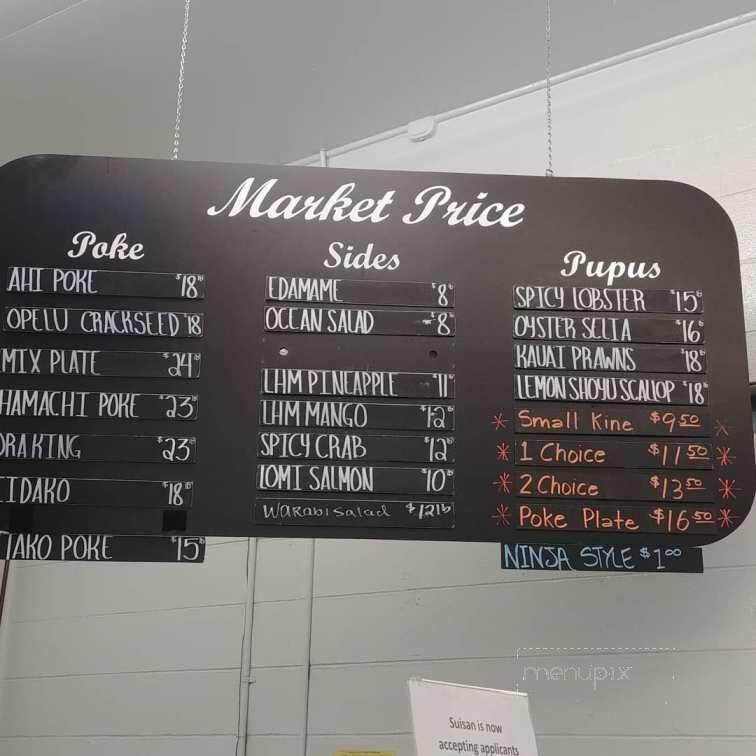 Market Price
Poke
AHI POKE $18
OPELU CRACKSEED $18
MIX PLATE $24
HAMACHI POKE $23
ORA KING $23
IIDAKO $18
TAKO POKE $15
Sides
EDAMAME $8
OCEAN SALAD $8
LHM PINEAPPLE $11
LHM MANGO $12
SPICY CRAB $12
LOMI SALMON $10
WaRabi Salad $12lb
Pupus
SPICY LOBSTER $15
OYSTER SELIA $16
KAUAI PRAWNS $18
LEMON SHOYU SCALLOP $18
* Small Kine $9.50 *
* 1 Choice $11.50 *
* 2 Choice $13.50 *
* Poke Plate $16.50 *
NINJA STYLE $1.00
menupix
Suisan is now
accepting applicants